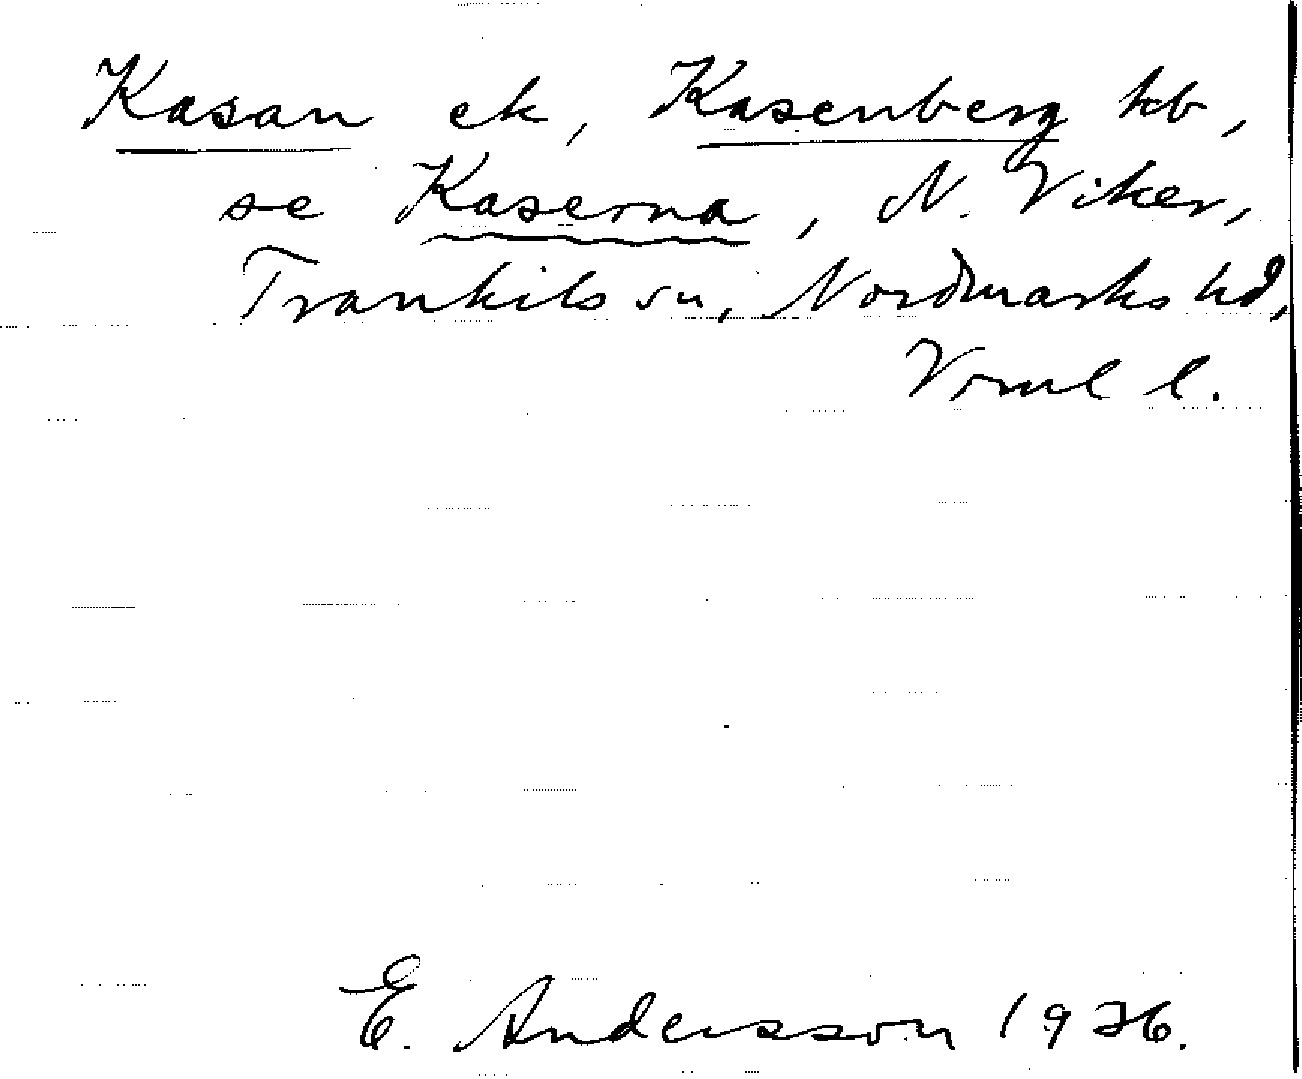 Kasan ek, Kasenberg kb,
se Kaserna, N. Viker,
Trankils sn, Nordmarks hd,
Vrml l.
E. Andersson 1926.